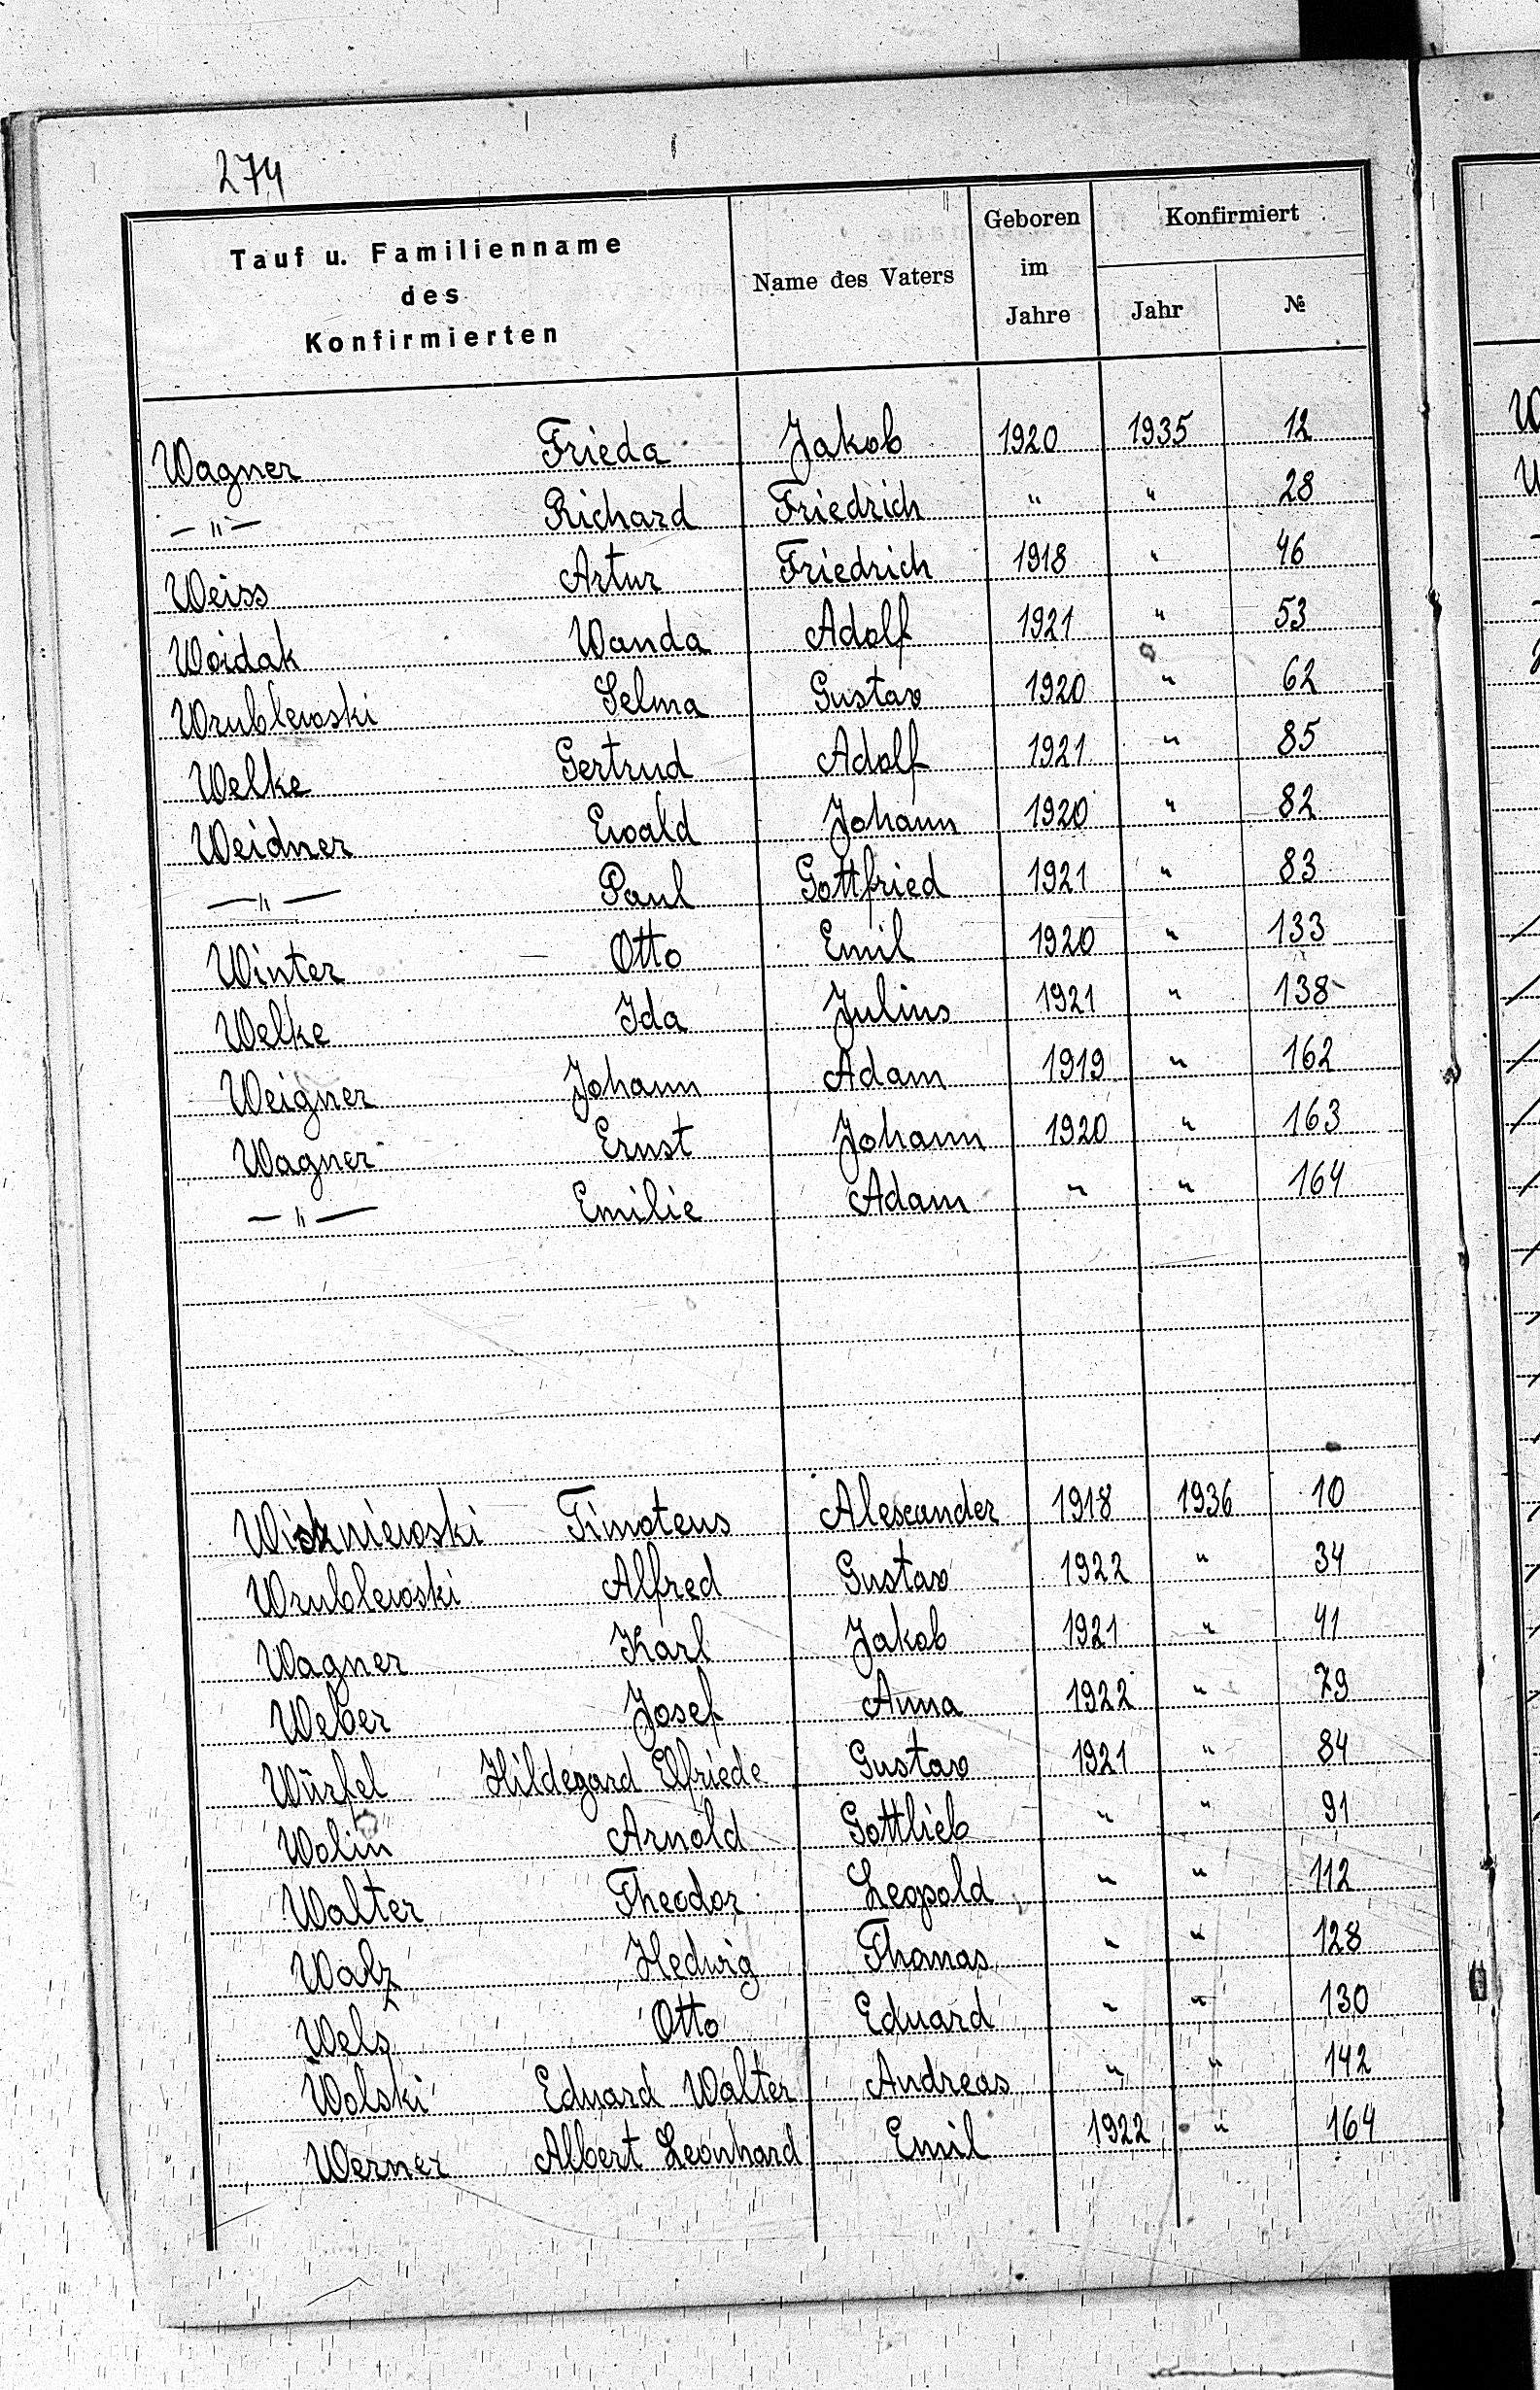 274
Tauf u. Familienname des Konfirmierten | Name des Vaters | Geboren im Jahre | Konfirmiert Jahr | №
Wagner Frieda Jakob 1920 1935 12
—"— Richard Friedrich " " 28
Weiss Artur Friedrich 1918 " 46
Woidak Wanda Adolf 1921 " 53
Wrublewski Selma Gustav 1920 " 62
Welke Gertrud Adolf 1921 " 85
Weidner Ewald Johann 1920 " 82
—"— Paul Gottfried 1921 " 83
Winter Otto Emil 1920 " 133
Welke Ida Julius 1921 " 138
Weigner Johann Adam 1919 " 162
Wagner Ernst Johann 1920 " 163
—"— Emilie Adam " " 164
Wiszniewski Timoteus Alexander 1918 1936 10
Wrublewski Alfred Gustav 1922 " 34
Wagner Karl Jakob 1921 " 41
Weber Josef Anna 1922 " 79
Würfel Hildegard Elfriede Gustav 1921 " 84
Wolin Arnold Gottlieb " " 91
Walter Theodor Leopold " " 112
Walz Hedwig Thomas " " 128
Welz Otto Eduard " " 130
Wolski Eduard Walter Andreas " " 142
Werner Albert Leonhard Emil 1922 " 164